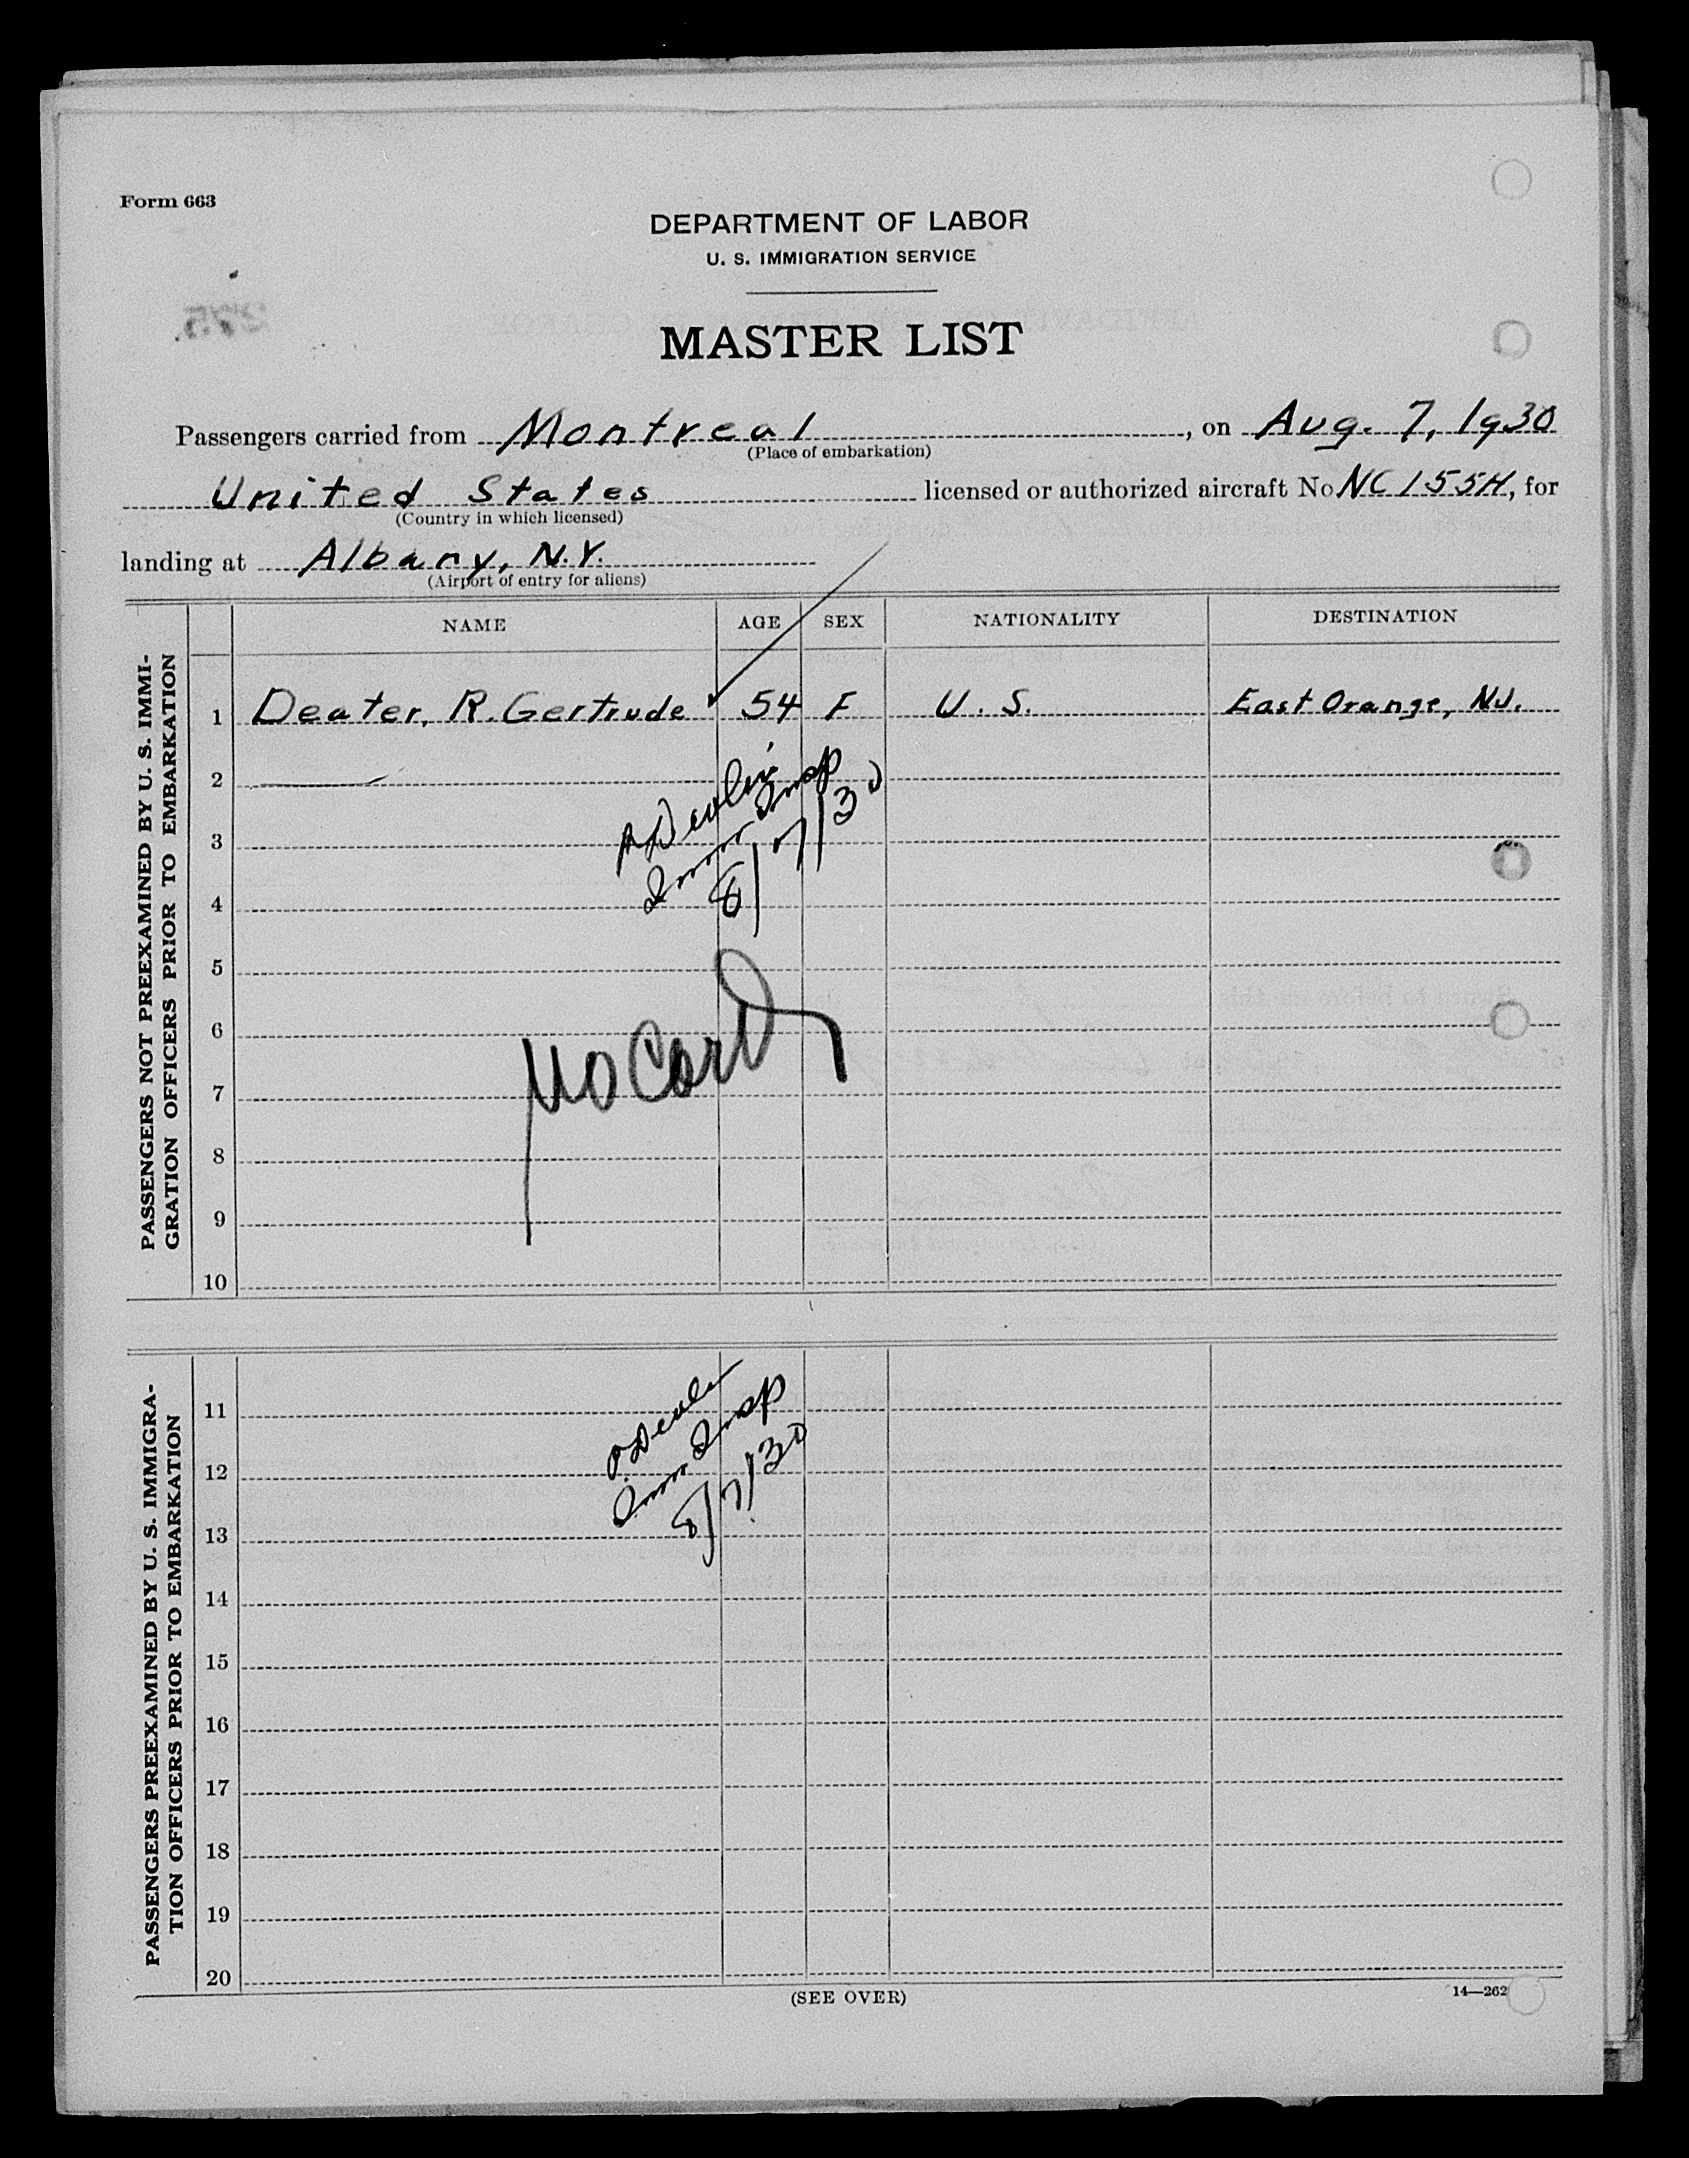 Form 663
DEPARTMENT OF LABOR
U. S. IMMIGRATION SERVICE
MASTER LIST
Passengers carried from Montreal, on Aug. 7, 1930
(Place of embarkation)
United States licensed or authorized aircraft No NC 155H, for
(Country in which licensed)
landing at Albany, N.Y.
(Airport of entry for aliens)
NAME AGE SEX NATIONALITY DESTINATION
PASSENGERS NOT PREEXAMINED BY U. S. IMMI-
GRATION OFFICERS PRIOR TO EMBARKATION
1 Deater, R. Gertrude 54 F U. S. East Orange, NJ.
2
3
4
5
6
7
8
9
10
Devlin
Imm Insp
8/7/30
no Card
PASSENGERS PREEXAMINED BY U. S. IMMIGRA-
TION OFFICERS PRIOR TO EMBARKATION
11
12
13
14
15
16
17
18
19
20
Imm Insp
8/7/30
(SEE OVER)
14—262